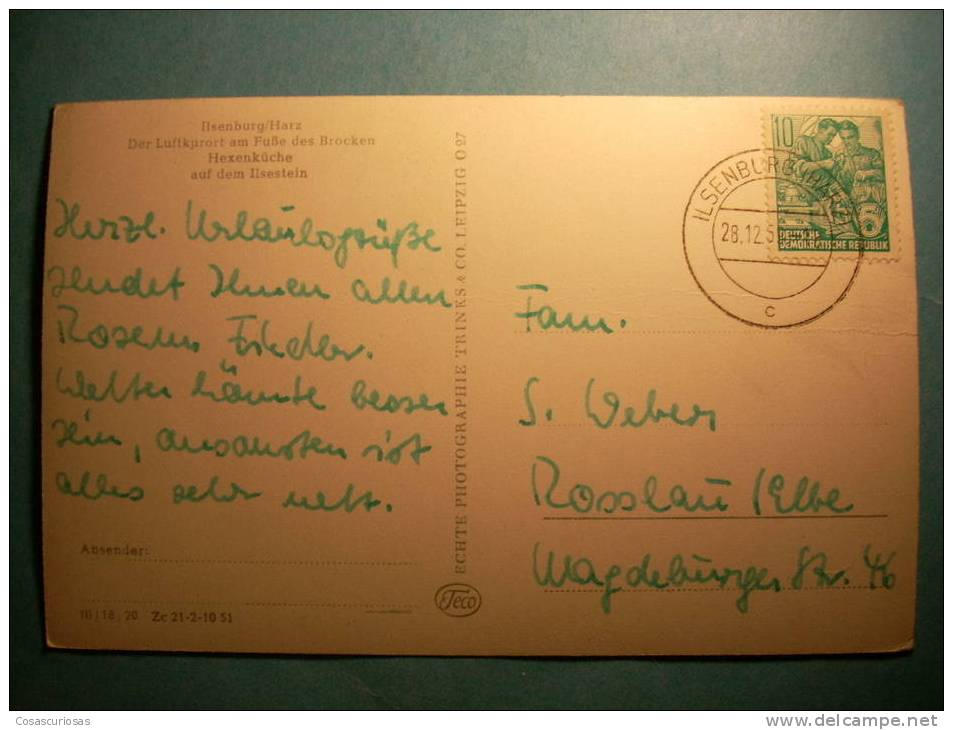 Ilsenburg/Harz
Der Luftkurort am Fuße des Brocken
Hexenküche
auf dem Ilsestein
Herzl. Urlaubsgrüße
sendet Ihnen allen
Wetter könnte besser
sein, ansonsten ist
alles sehr nett.
Absender:
III/18/20 Zc 21-2-10 51
ECHTE PHOTOGRAPHIE TRINKS & CO. LEIPZIG O 27
Teco
10
DEUTSCHE
DEMOKRATISCHE REPUBLIK
ILSENBURG (HARZ)
28.12.5
c
Fam.
S. Weber
Rosslau/Elbe
Magdeburger Str. 46
Cosascuriosas
www.delcampe.net